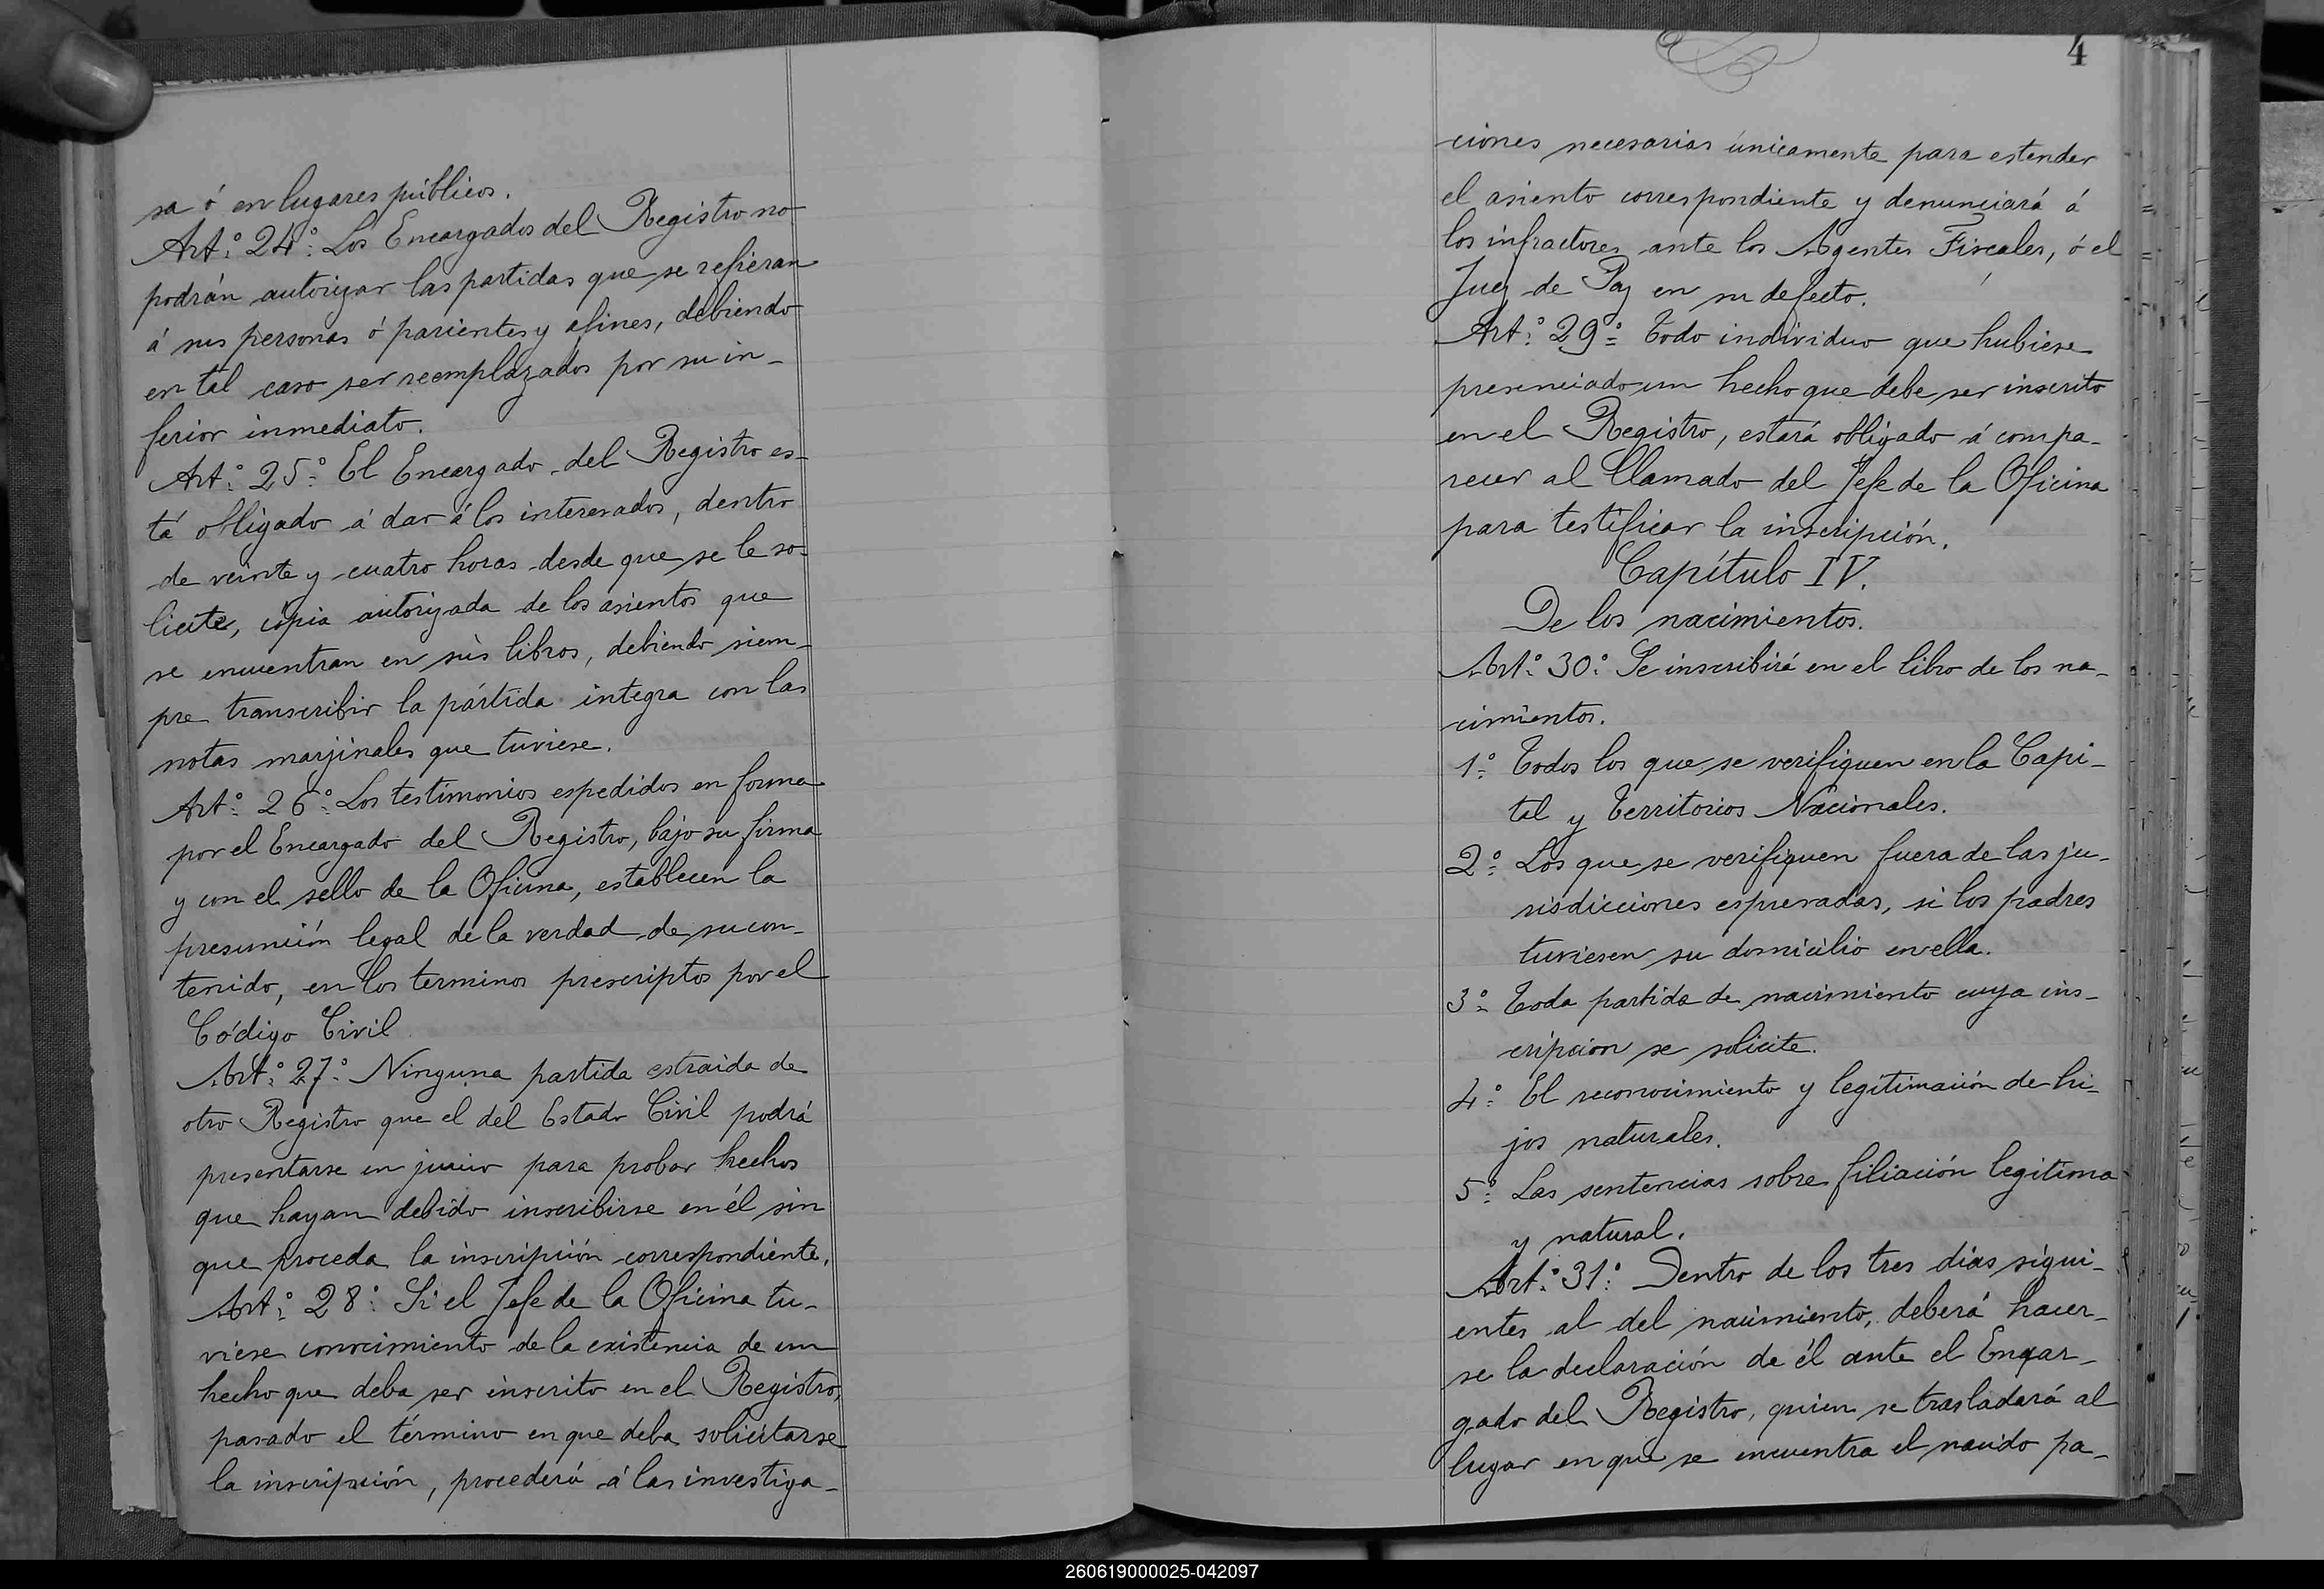 sa ó en lugares públicos.
Art.º 24º. Los Encargados del Registro no
podrán autorizar las partidas que se refieran
á sus personas ó parientes y afines, debiendo
en tal caso ser reemplazados por su in-
ferior inmediato.
Art.º 25º. El Encargado del Registro es-
tá obligado á dar á los interesados, dentro
de veinte y cuatro horas desde que se le so-
licite, cópia autorizada de los asientos que
se encuentran en sus libros, debiendo siem-
pre transcribir la pártida integra con las
notas marjinales que tuviese.
Art.º 26º. Los testimonios espedidos en forma
por el Encargado del Registro, bajo su firma
y con el sello de la Oficina, establecen la
presunción legal de la verdad de su con-
tenido, en los terminos prescriptos por el
Código Civil
Art.º 27º. Ninguna partida estraida de
otro Registro que el del Estado Civil podrá
presentarse en juicio para probar hechos
que hayan debido inscribirse en él sin
que proceda la inscripción correspondiente.
Art.º 28º. Si el Jefe de la Oficina tu-
viese conocimiento de la existencia de un
hecho que deba ser inscrito en el Registro,
pasado el término en que deba solicitarse
la inscripción, procederá á las investiga-
4
ciones necesarias únicamente para estender
el asiento correspondiente y denunciará á
los infractores ante los Agentes Fiscales, ó el
Juez de Paz en su defecto.
Art.º 29º. Todo individuo que hubiese
presenciado un hecho que debe ser inscrito
en el Registro, estará obligado á compa-
recer al llamado del Jefe de la Oficina
para testificar la inscripción.
Capítulo IV.
De los nacimientos.
Art.º 30º. Se inscribirá en el libro de los na-
cimientos.
1º. Todos los que se verifiquen en la Capi-
tal y Territorios Nacionales.
2º. Los que se verifiquen fuera de las ju-
risdicciones espresadas, si los padres
tuviesen su domicilio en ella.
3º. Toda partida de nacimiento cuya ins-
cripcion se solicite.
4º. El reconocimiento y legitimación de hi-
jos naturales.
5º. Las sentencias sobre filiación legitima
y natural.
Art.º 31º. Dentro de los tres dias sigui-
entes al del nacimiento, deberá hacer-
se la declaración de él ante el Encar-
gado del Registro, quien se trasladará al
lugar en que se encuentra el nacido pa-
260619000025-042097